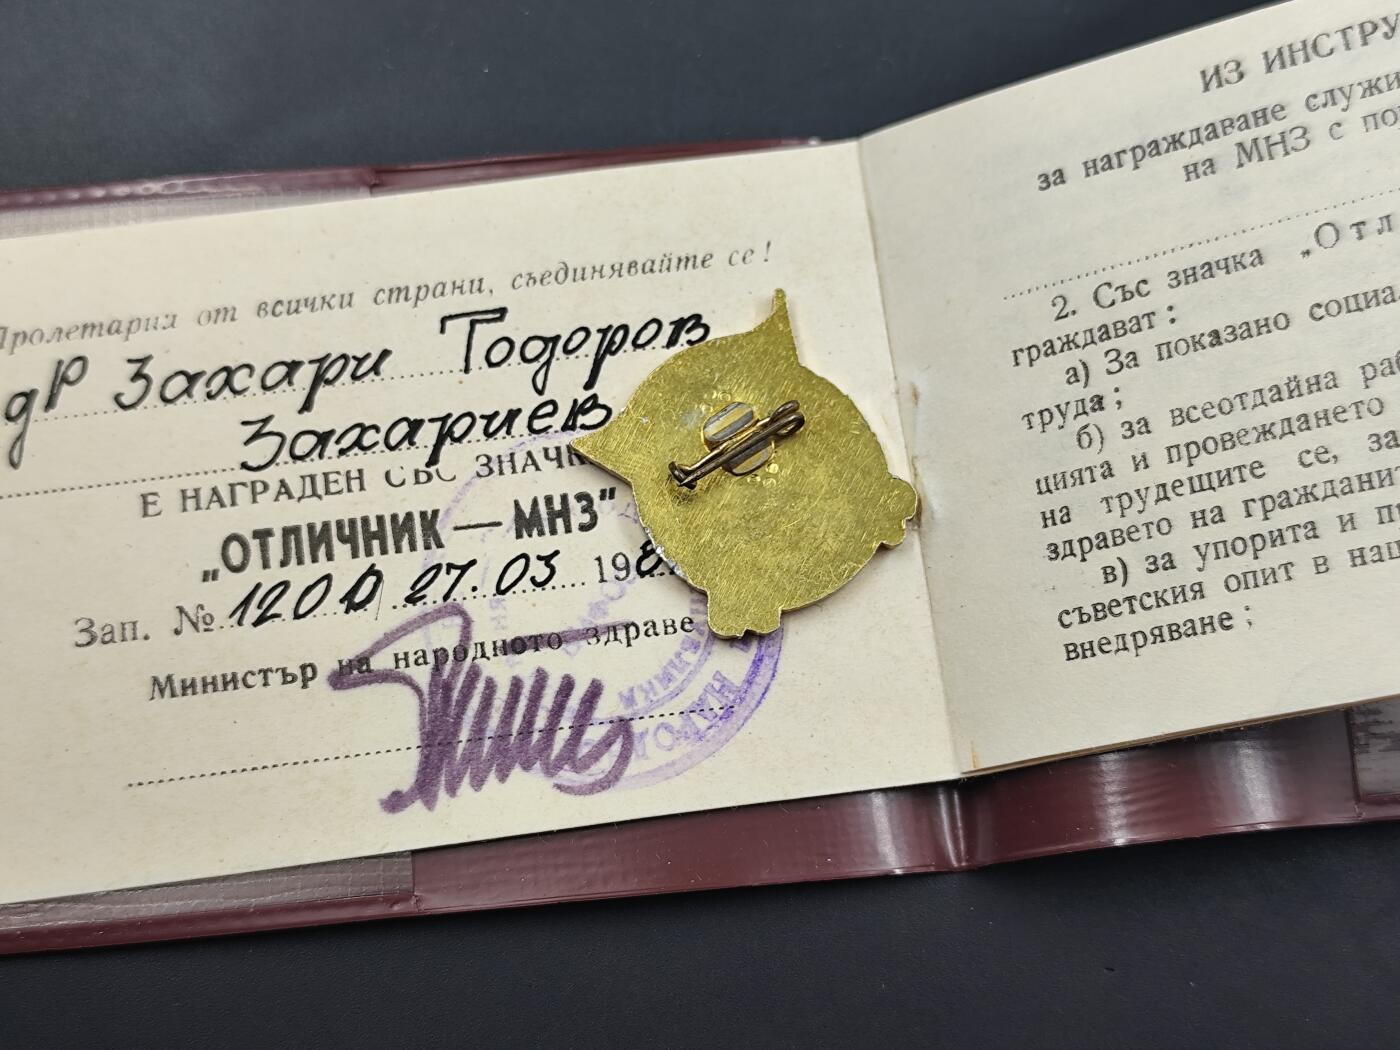 Пролетарии от всички страни, съединявайте се!
др Захари Тодоров
Захариев
Е НАГРАДЕН СЪС ЗНАЧК
„ОТЛИЧНИК — МНЗ"
Зап. № 1200 27.03 198
Министър на народното здраве
НАРОД
ИЗ ИНСТРУ
за награждаване служи
на МНЗ с по
2. Със значка „Отл
граждават:
а) За показано социа
труда;
б) за всеотдайна раб
цията и провеждането
на трудещите се, за
здравето на граждани
в) за упорита и п
съветския опит в наш
внедряване;